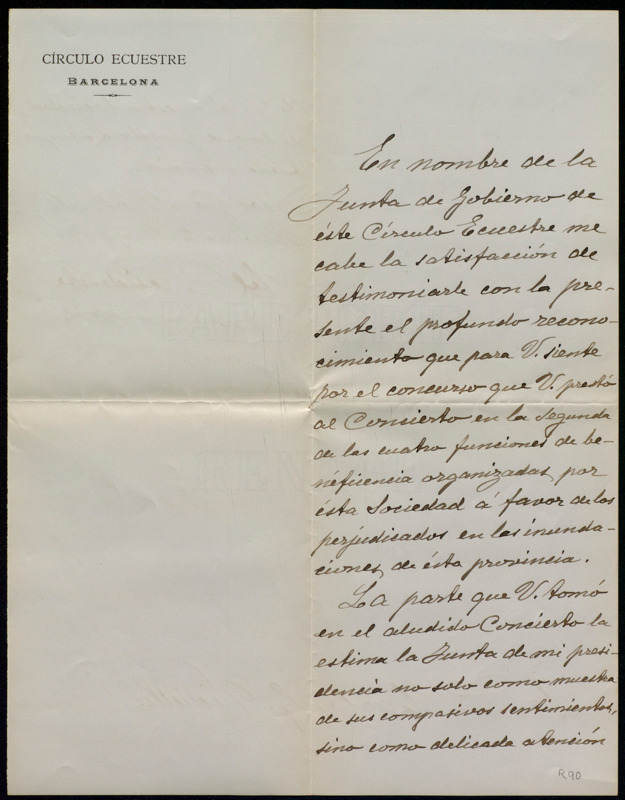 CÍRCULO ECUESTRE
BARCELONA
En nombre de la
Junta de Gobierno de
éste Círculo Ecuestre me
cabe la satisfacción de
testimoniarle con la pre-
sente el profundo recono-
cimiento que para V. siente
por el concurso que V. prestó
al Concierto en la segunda
de las cuatro funciones de be-
néficiencia organizadas por
ésta Sociedad á favor de los
perjudicados en las inunda-
ciones, de ésta provincia.
La parte que V. tomó
en el aludido Concierto la
estima la Junta de mi presi-
dencia no solo como muestra
de sus compasivos sentimientos,
sino como delicada atención
R90